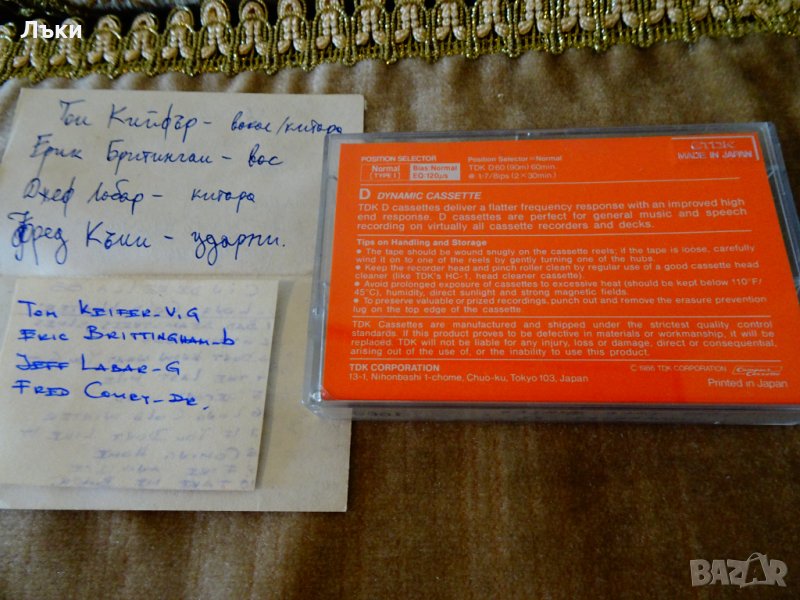 Лъки
Том Кийфър - вокал/китара
Ерик Бритингам - бас
Джеф Лабар - китара
Фред Къми - ударни.
TOM KEIFER-V.G
ERIC BRITTINGHAM-b
JEFF LABAR-G
FRED COURY-DR.
TDK
MADE IN JAPAN
POSITION SELECTOR
Normal TYPE I
Bias: Normal
EQ: 120µs
Position Selector = Normal
TDK D60 (90m) 60min.
● 1-7/8ips (2×30min.)
D DYNAMIC CASSETTE
TDK D cassettes deliver a flatter frequency response with an improved high
end response. D cassettes are perfect for general music and speech
recording on virtually all cassette recorders and decks.
Tips on Handling and Storage
● The tape should be wound snugly on the cassette reels; if the tape is loose, carefully
wind it on to one of the reels by gently turning one of the hubs.
● Keep the recorder head and pinch roller clean by regular use of a good cassette head
cleaner (like TDK's HC-1, head cleaner cassette).
● Avoid prolonged exposure of cassettes to excessive heat (should be kept below 110°F/
45°C), humidity, direct sunlight and strong magnetic fields.
● To preserve valuable or prized recordings, punch out and remove the erasure prevention
lug on the top edge of the cassette.
TDK Cassettes are manufactured and shipped under the strictest quality control
standards. If this product proves to be defective in materials or workmanship, it will be
replaced. TDK will not be liable for any injury, loss or damage, direct or consequential,
arising out of the use of, or the inability to use this product.
TDK CORPORATION
13-1, Nihonbashi 1-chome, Chuo-ku, Tokyo 103, Japan
© 1986 TDK CORPORATION
Printed in Japan
BAZAR